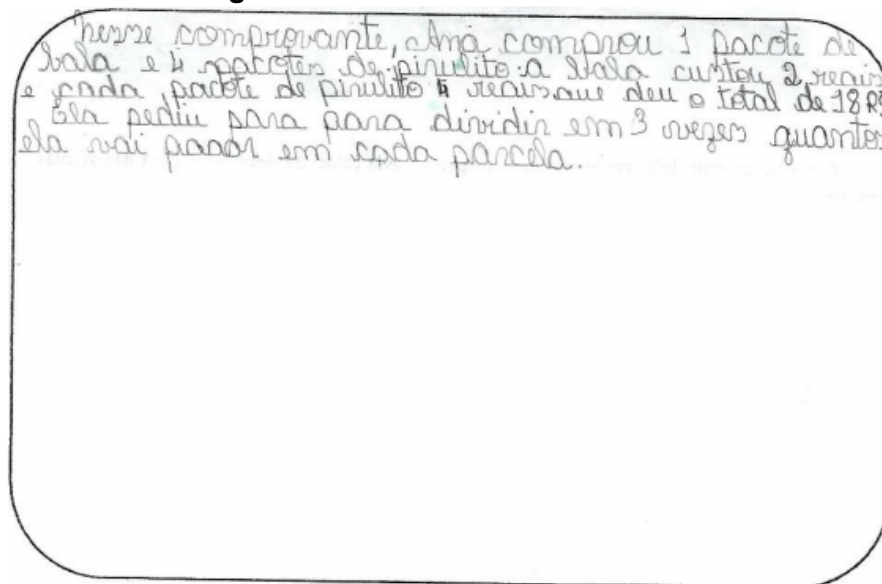 nesse comprovante, Ana comprou 1 pacote de
bala e 4 pacotes de pirulito a bala custou 2 reais
e cada pacote de pirulito 4 reais que deu o total de 18 R$
Ela pediu para para dividir em 3 vezes quantos
ela vai pagar em cada parcela.